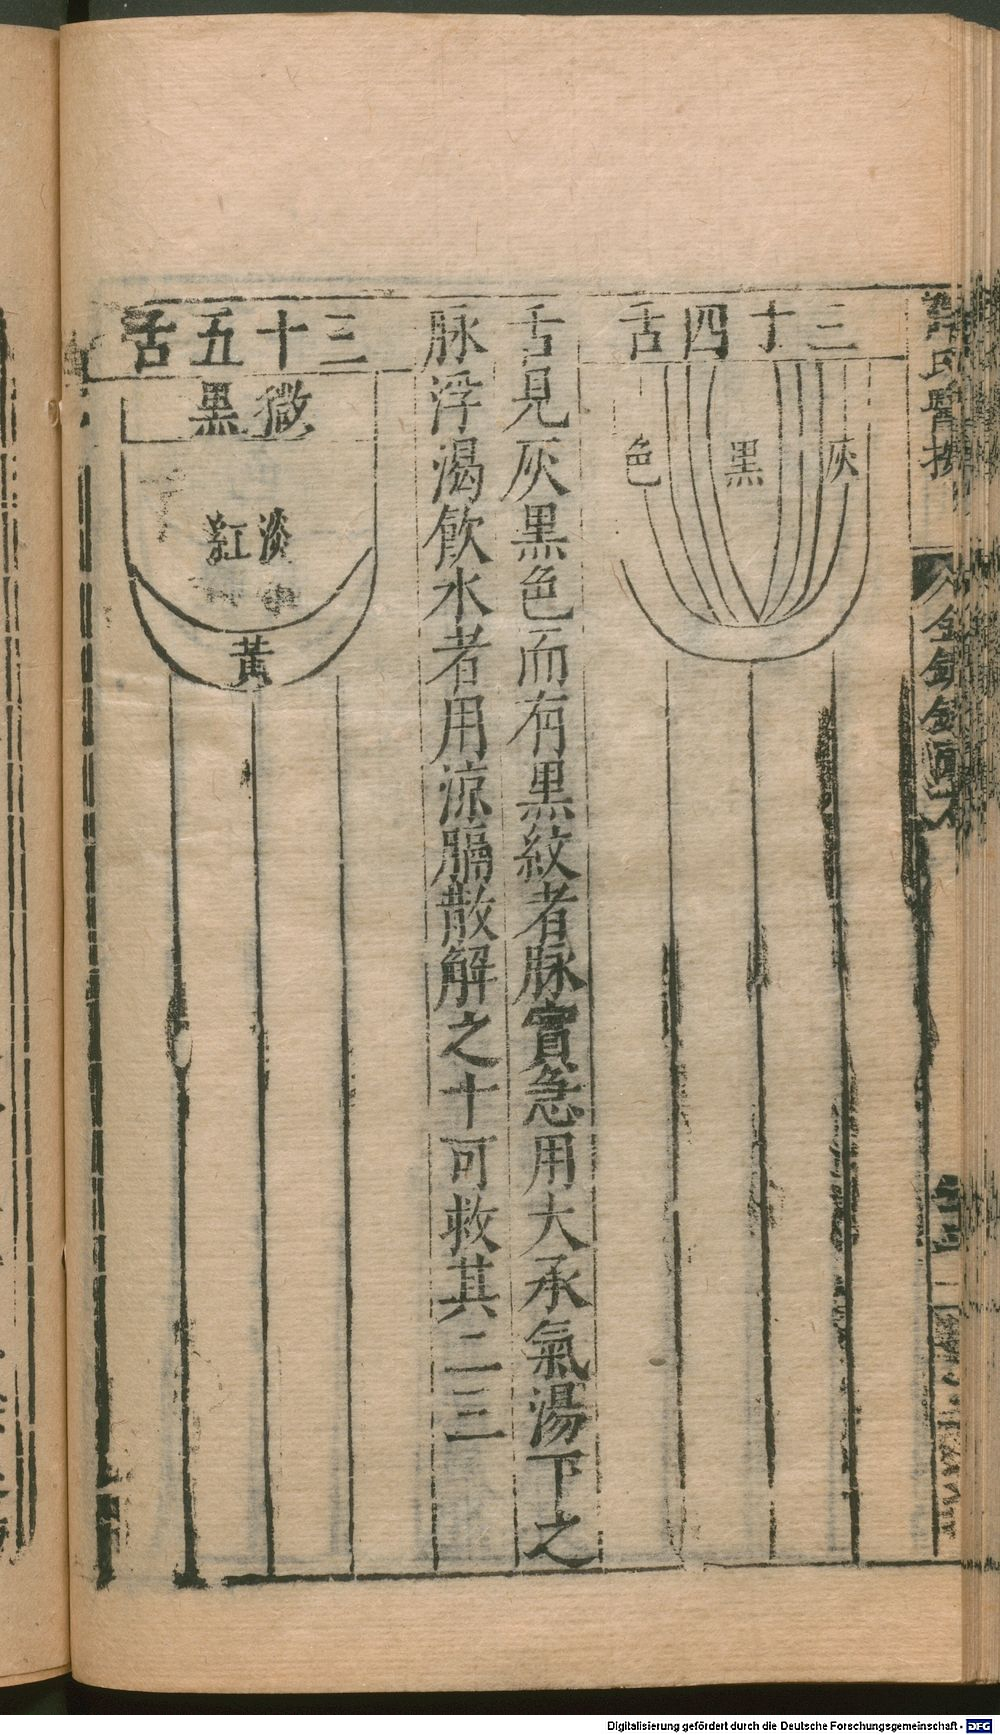 三十四舌
灰
黑
色
舌見灰黑色而有黑紋者脉實急用大承氣湯下之
脉浮渴飲水者用涼膈散解之十可救其二三
三十五舌
微黑
淡紅
黃
Digitalisierung gefördert durch die Deutsche Forschungsgemeinschaft - DFG